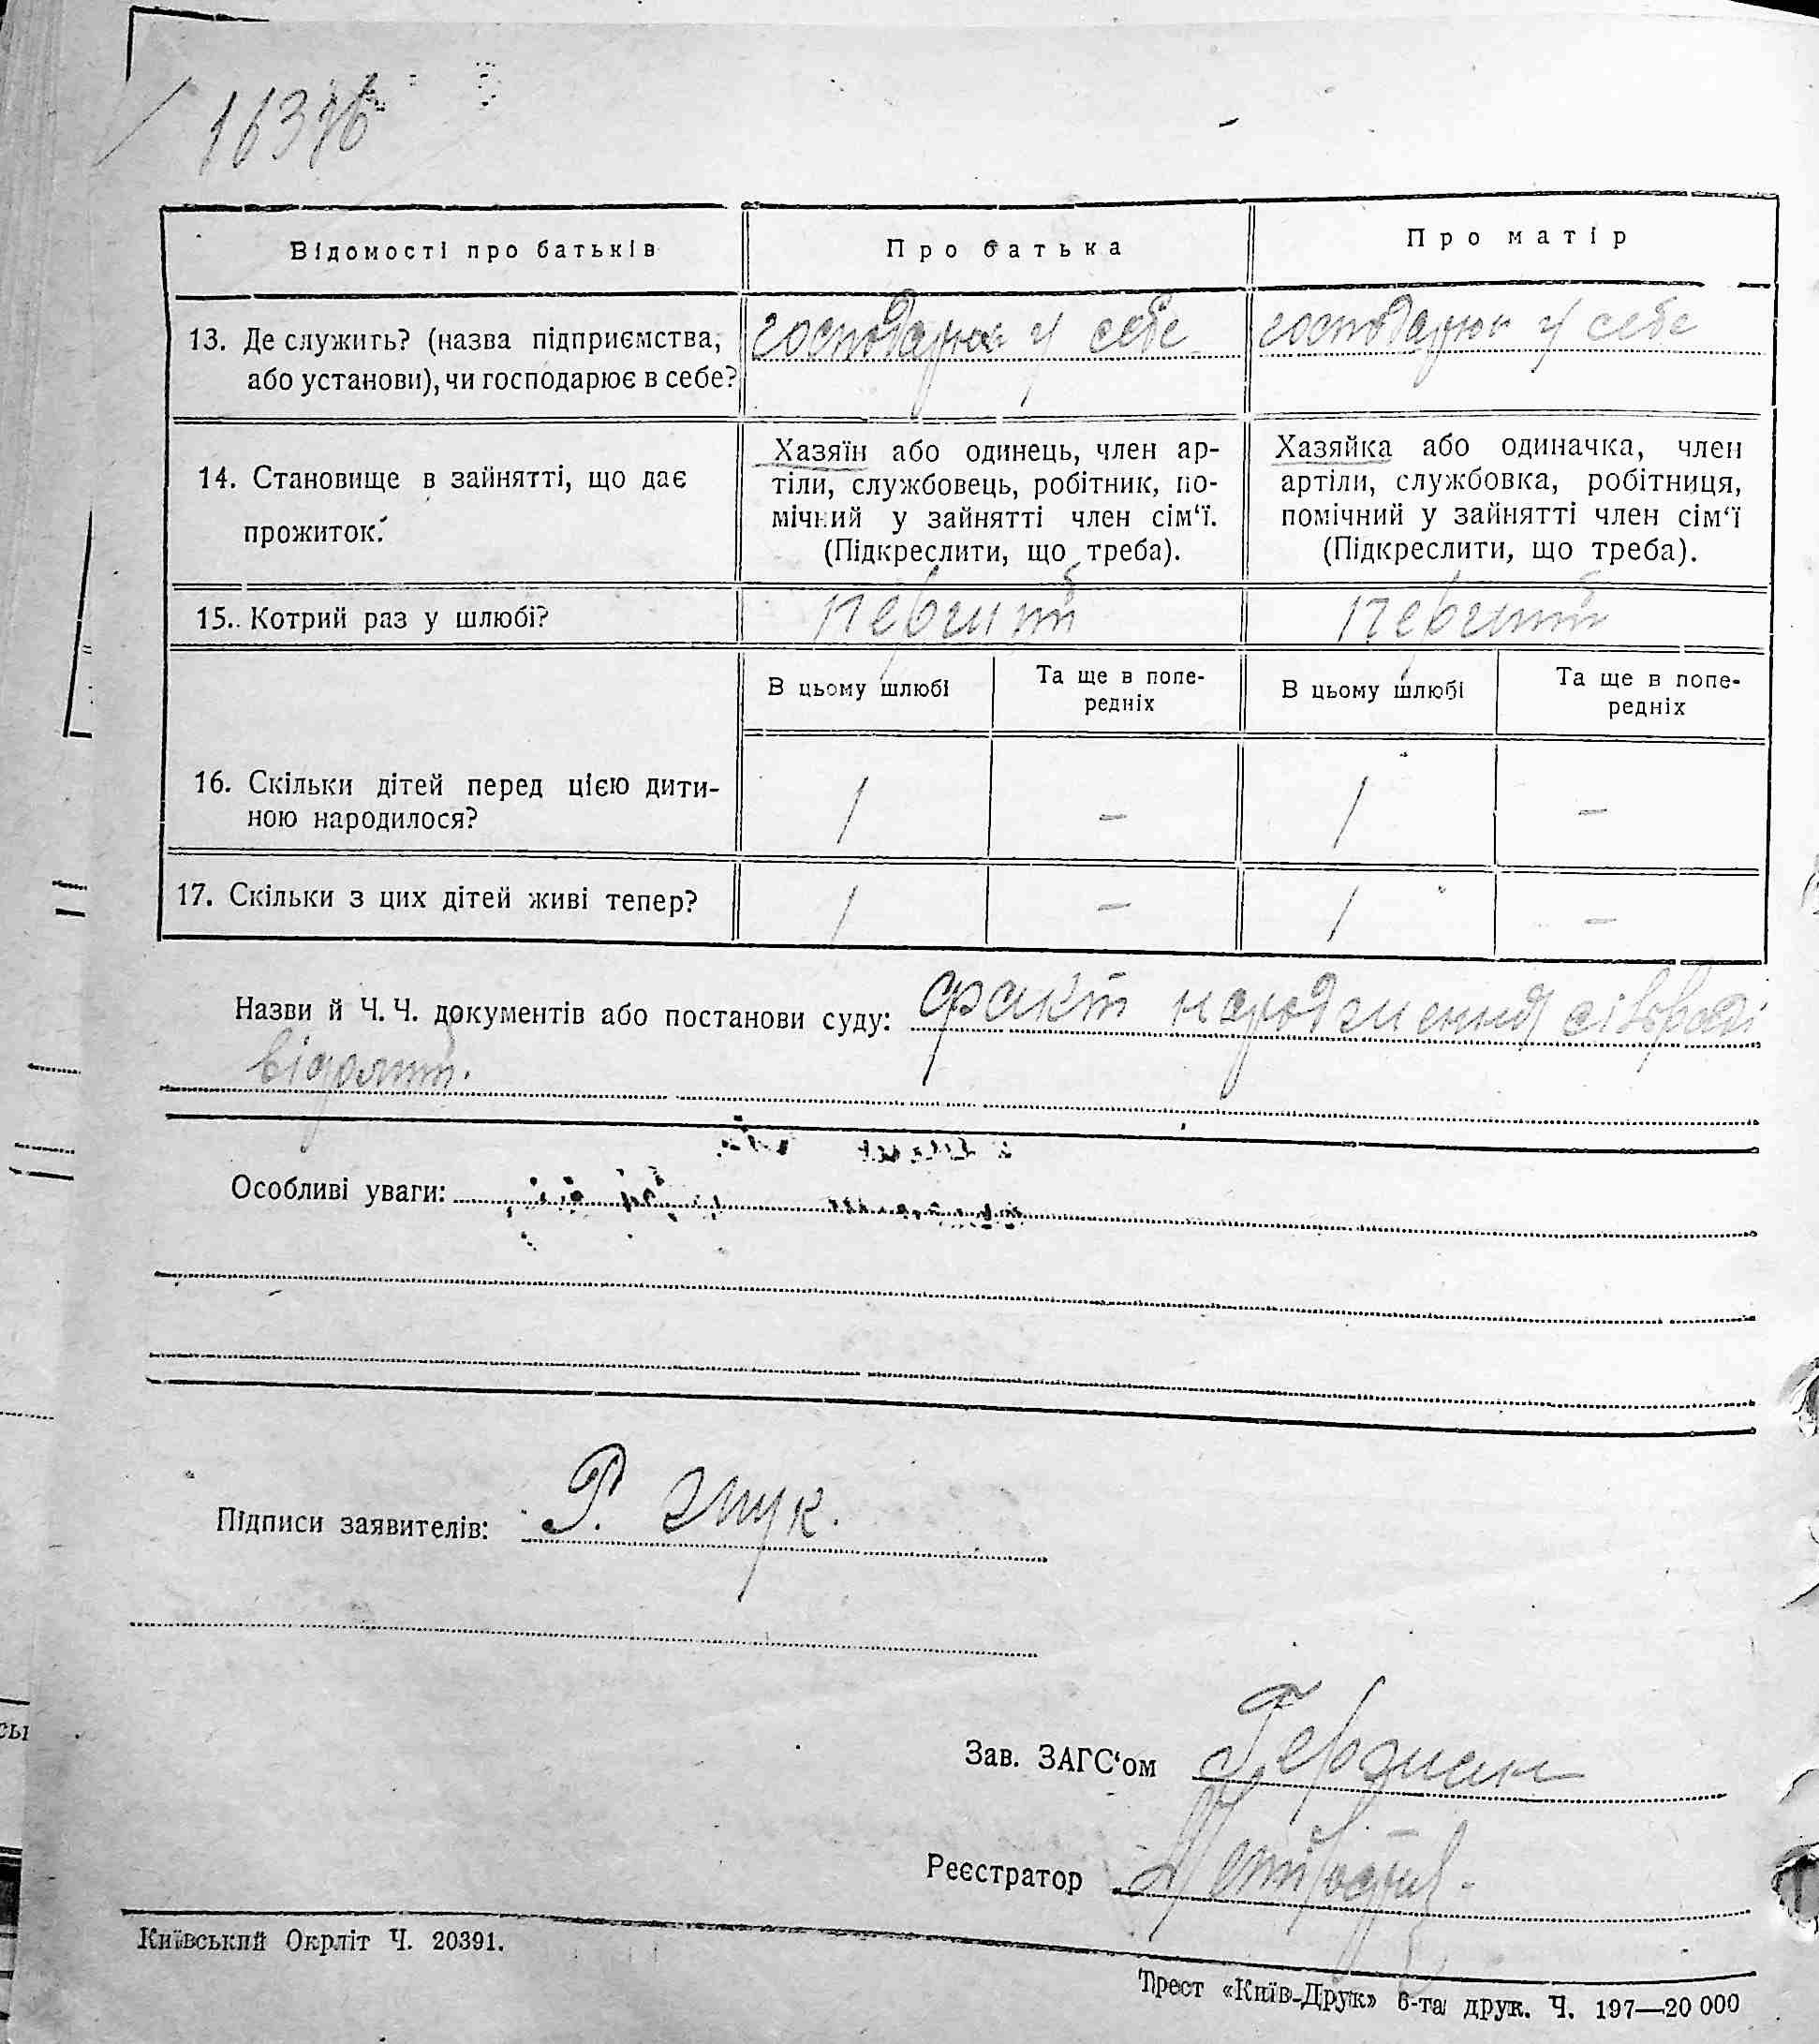 163
Відомості про батьків
Про батька
Про матір
13. Де служить? (назва підприємства,
або установи), чи господарює в себе?
господарює у себе
господарює у себе
14. Становище в зайнятті, що дає
прожиток.
Хазяїн або одинець, член ар-
тіли, службовець, робітник, по-
мічний у зайнятті член сім'ї.
(Підкреслити, що треба).
Хазяйка або одиначка, член
артіли, службовка, робітниця,
помічний у зайнятті член сім'ї
(Підкреслити, що треба).
15. Котрий раз у шлюбі?
первий
первий
В цьому шлюбі
Та ще в попе-
редніх
В цьому шлюбі
Та ще в попе-
редніх
16. Скільки дітей перед цією дити-
ною народилося?
1
–
1
–
17. Скільки з цих дітей живі тепер?
1
–
1
–
Назви й Ч. Ч. документів або постанови суду: факт народження сівраді
відомий.
Особливі уваги:
Підписи заявителів: Р.
Зав. ЗАГС'ом
Реєстратор
Київський Окрліт Ч. 20391.
Трест «Київ-Друк» 6-та друк. Ч. 197—20 000
сы